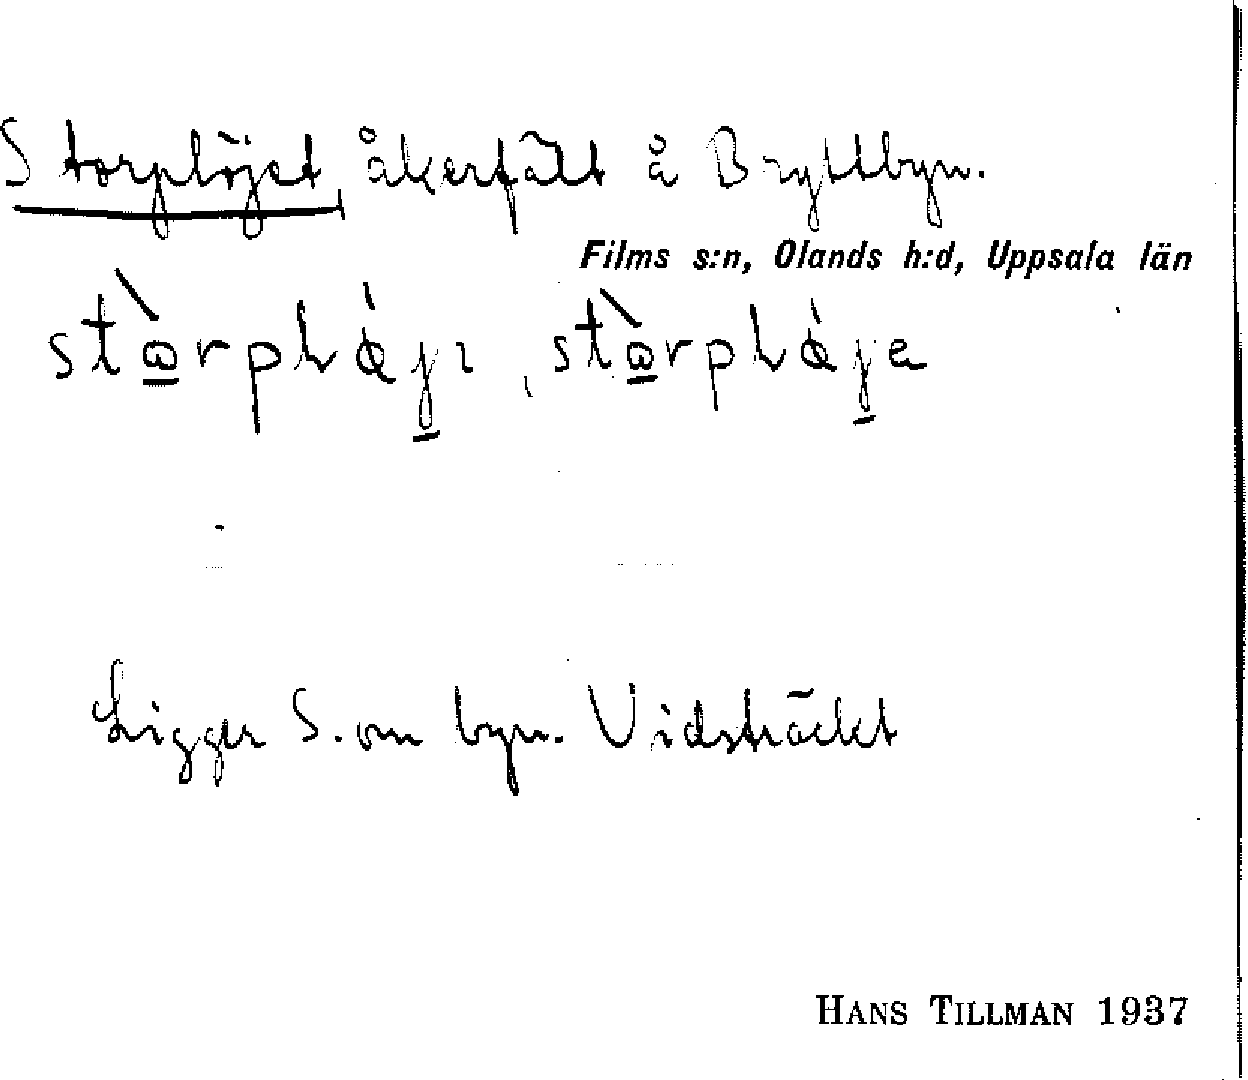 Storplöjet, åkerfält å Bryttbyn.
Films s:n, Olands h:d, Uppsala län
Ligger S. om byn. Vidsträckt
HANS TILLMAN 1937